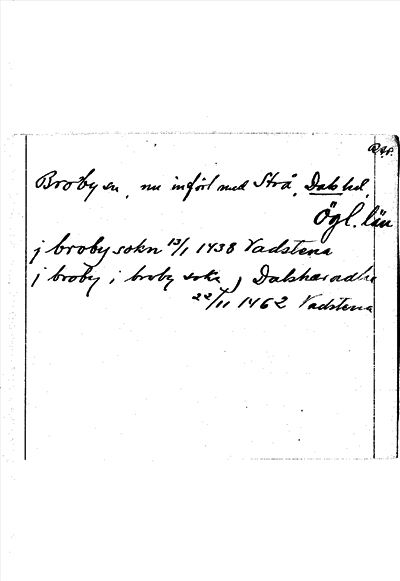 RA.
Broby sn, nu införl. med Strå, Dals hd.
Ögl. län
j broby sokn 13/1 1438 Vadstena
j broby i broby sokn, Dalshæradhe
22/11 1462 Vadstena